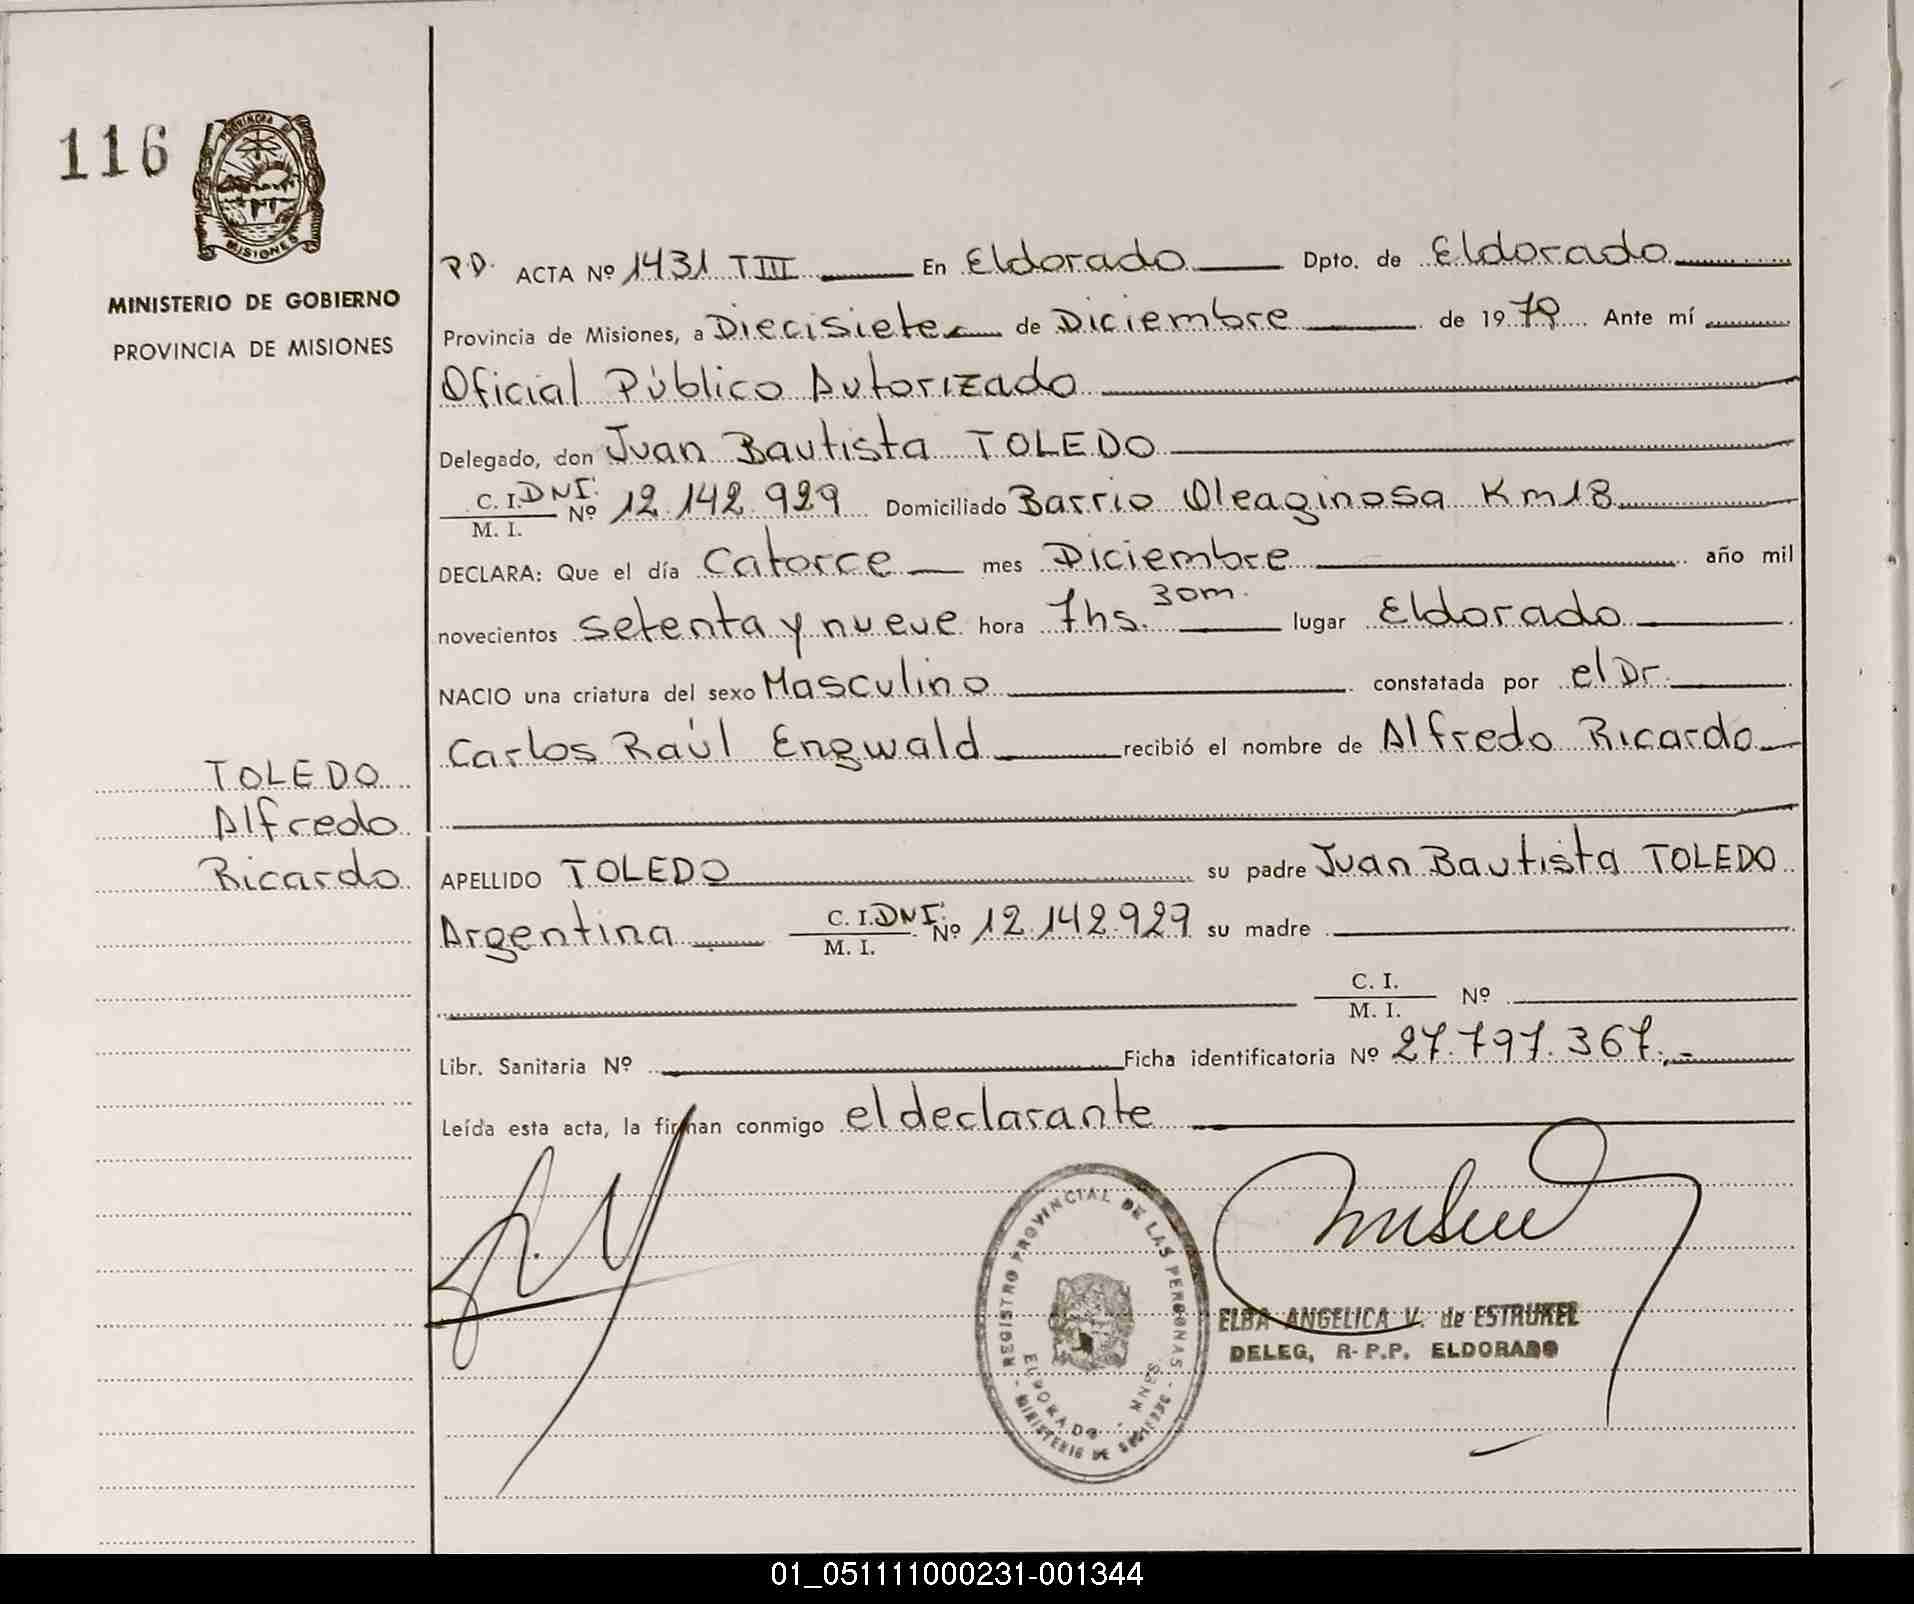 116
PROVINCIA DE
MISIONES
MINISTERIO DE GOBIERNO
PROVINCIA DE MISIONES
P.D. ACTA Nº 1431 TIII En Eldorado Dpto. de Eldorado
Provincia de Misiones, a Diecisiete de Diciembre de 1979 Ante mí
Oficial Público Autorizado
Delegado, don Juan Bautista TOLEDO
C. I. DNI. Nº 12.142.929 Domiciliado Barrio Oleaginosa Km18
M. I.
DECLARA: Que el día Catorce mes Diciembre año mil
novecientos setenta y nueve hora 7hs. 30m. lugar Eldorado
NACIO una criatura del sexo Masculino constatada por el Dr.
Carlos Raúl Engwald recibió el nombre de Alfredo Ricardo
TOLEDO
Alfredo
Ricardo
APELLIDO TOLEDO su padre Juan Bautista TOLEDO
Argentina C. I. DNI. Nº 12.142.929 su madre
M. I.
C. I. Nº
M. I.
Libr. Sanitaria Nº Ficha identificatoria Nº 27.797.367.-
Leída esta acta, la firman conmigo el declarante
REGISTRO PROVINCIAL DE LAS PERSONAS
ELDORADO - MNES
MINISTERIO DE GOBIERNO
ELBA ANGELICA V. de ESTRUKEL
DELEG, R-P.P. ELDORADO
01_051111000231-001344